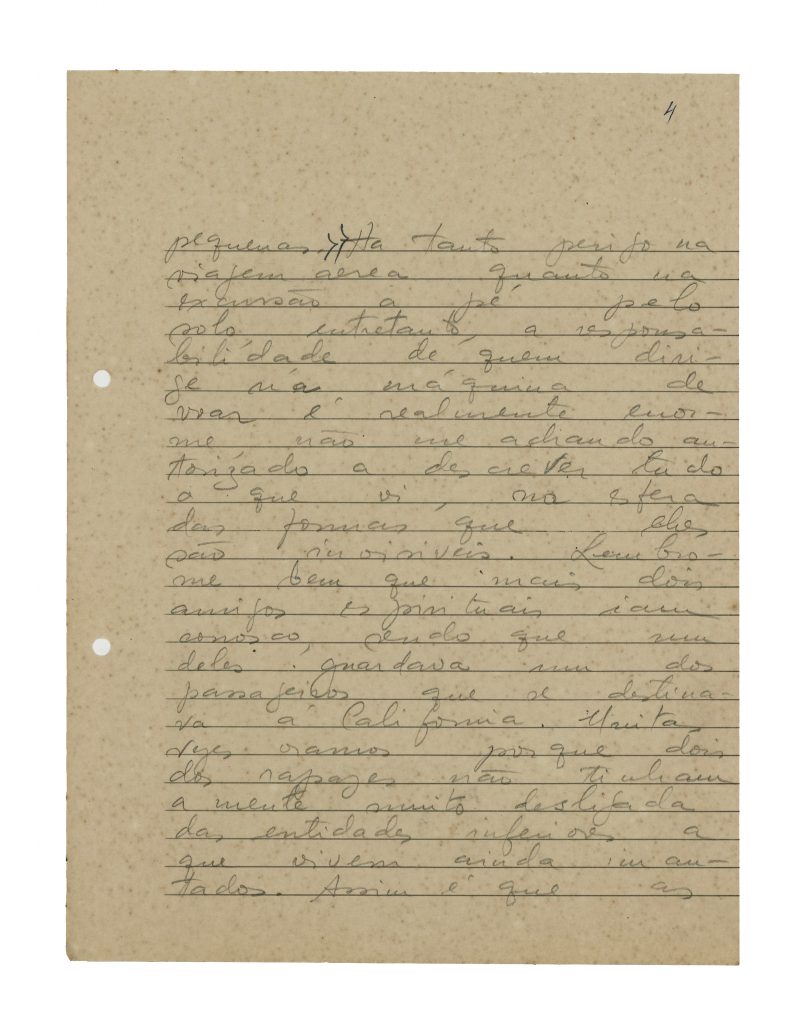 4
pequenas. Ha tanto perigo na
viagem aerea quanto na
excursão a pé pelo
solo entretanto, a responsa-
bilidade de quem diri-
ge na máquina de
voar é realmente enor-
me não me achando au-
torizado a descrever tudo
o que vi, na esfera
das formas que eles
são invisiveis. Lembro-
me bem que mais dois
amigos espirituais iam
conosco, sendo que um
deles guardava um dos
passageiros que se destina-
va á California. Muita
vezes oramos porque dois
dos rapazes não tinham
a mente muito desligada
das entidades inferiores a
que vivem ainda iman-
tados. Assim é que as